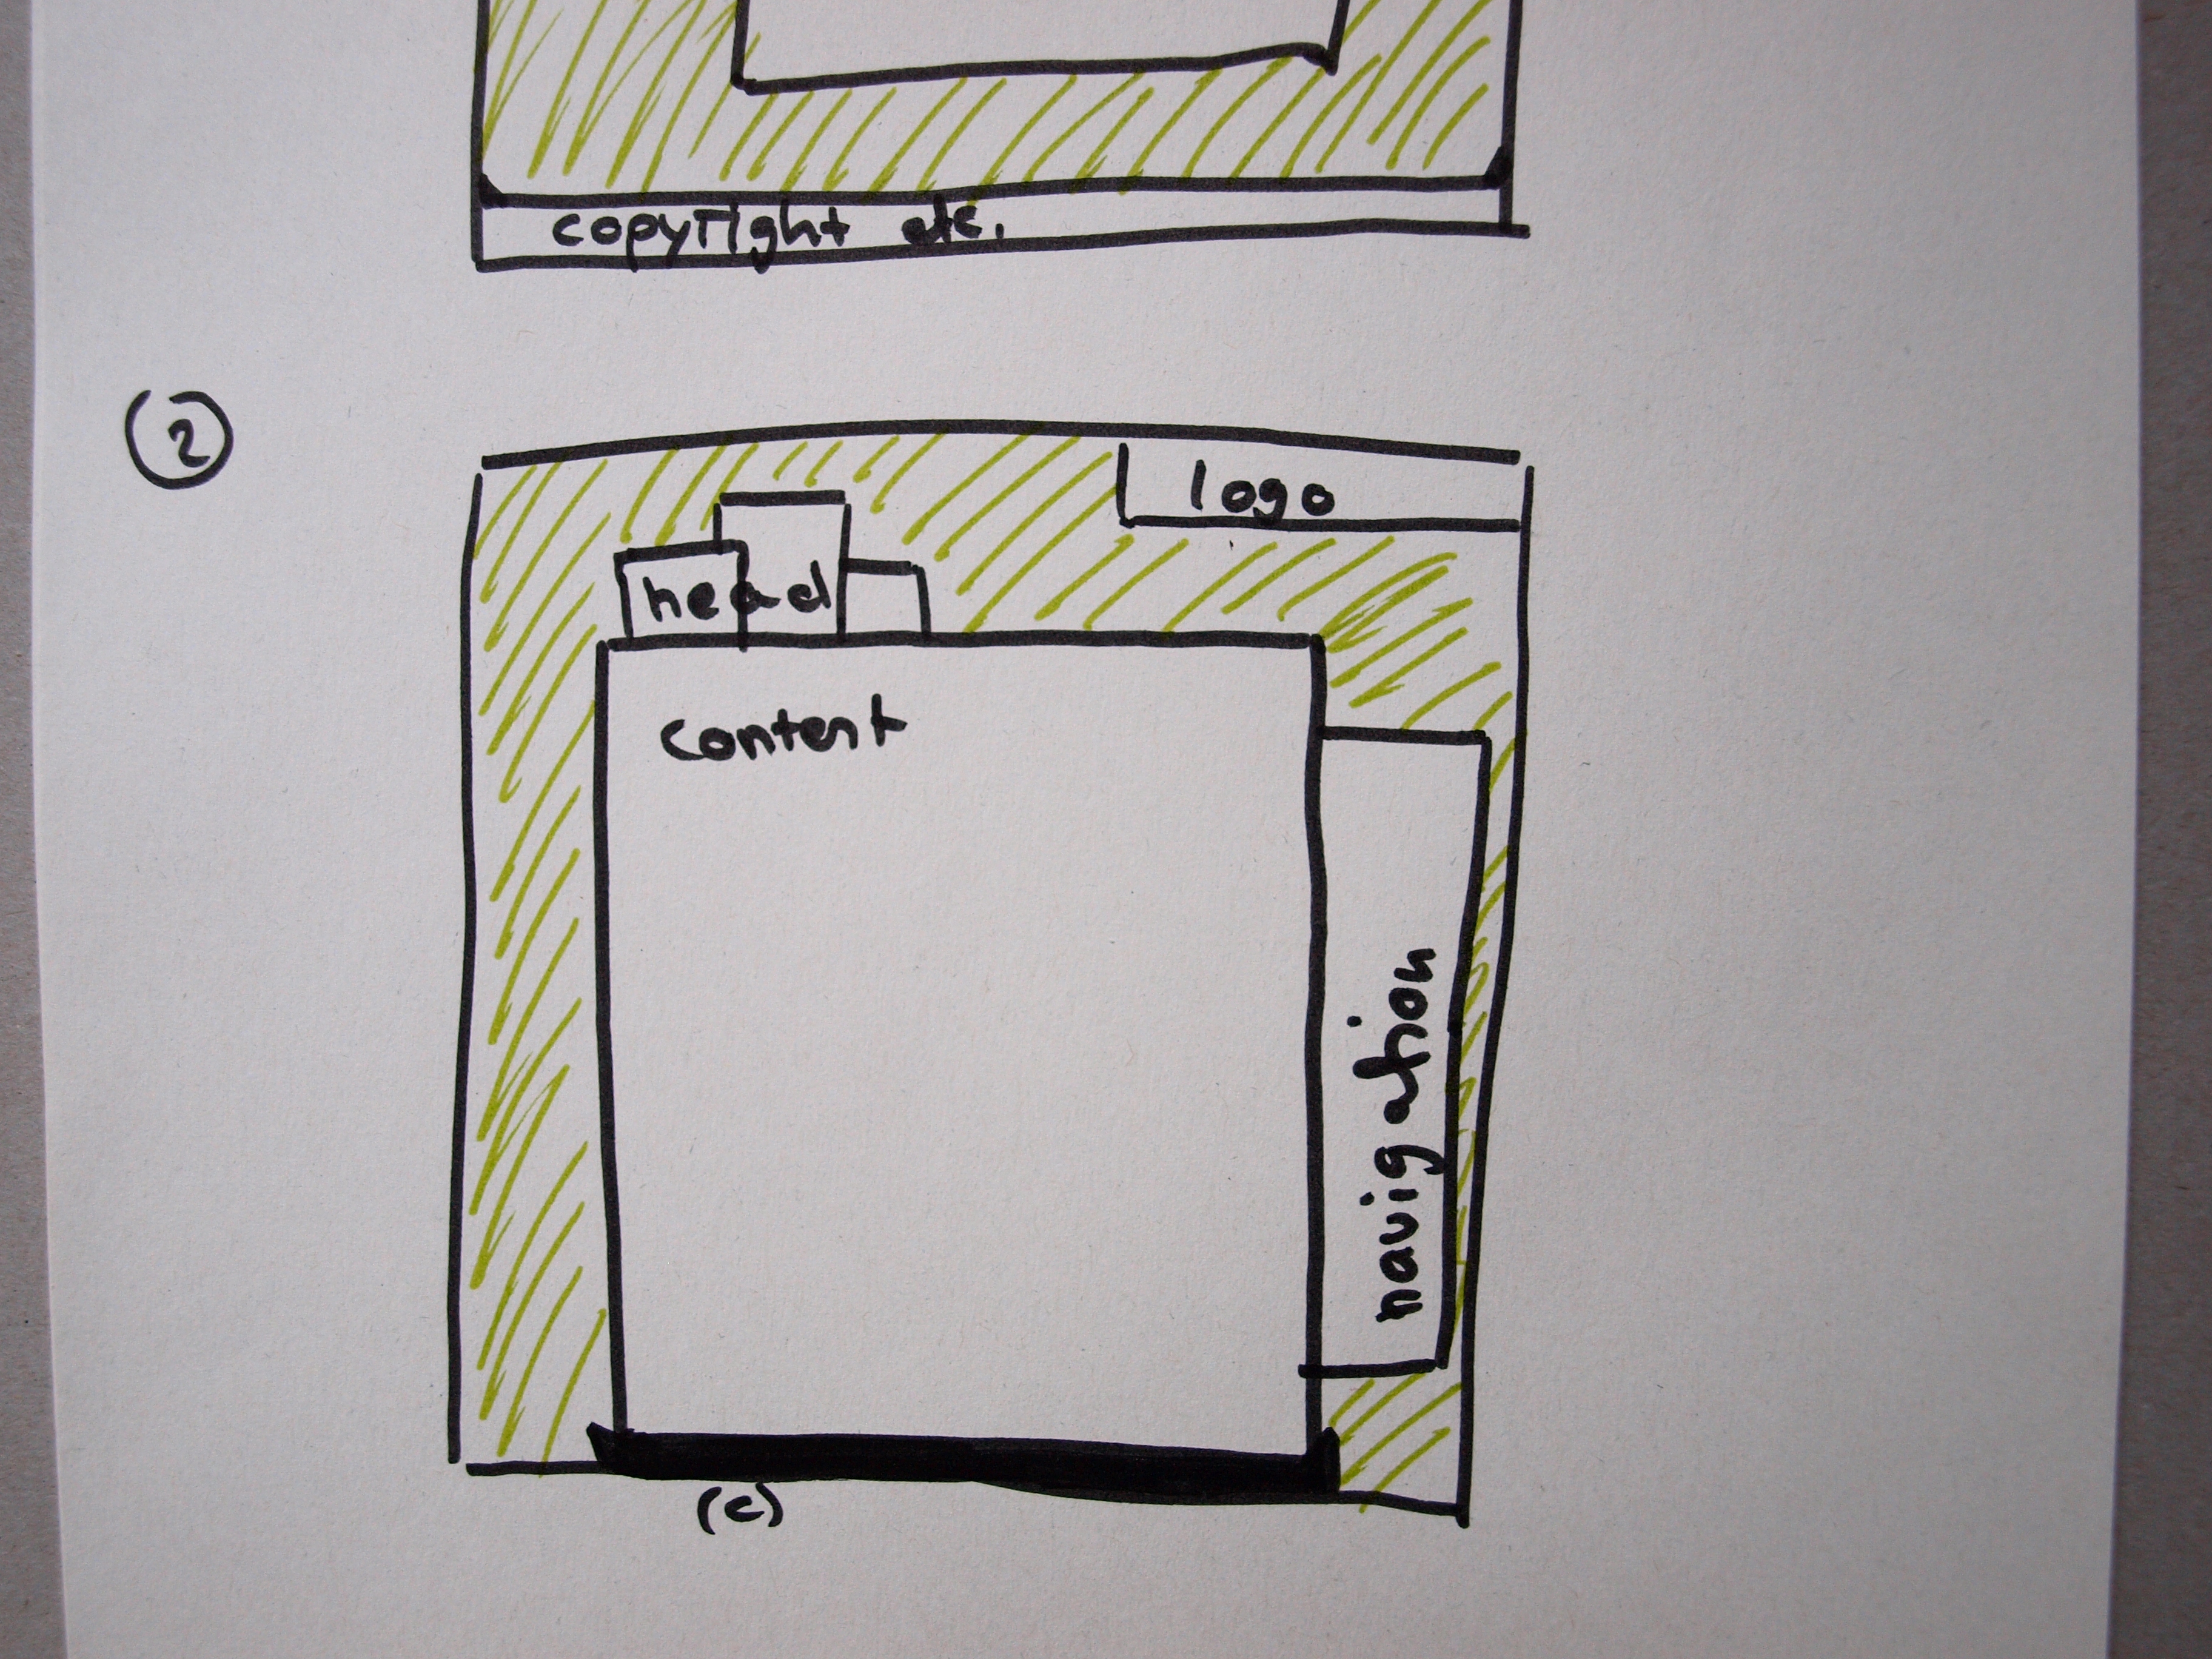 copyright etc.
2
logo
head
content
navigation
(c)